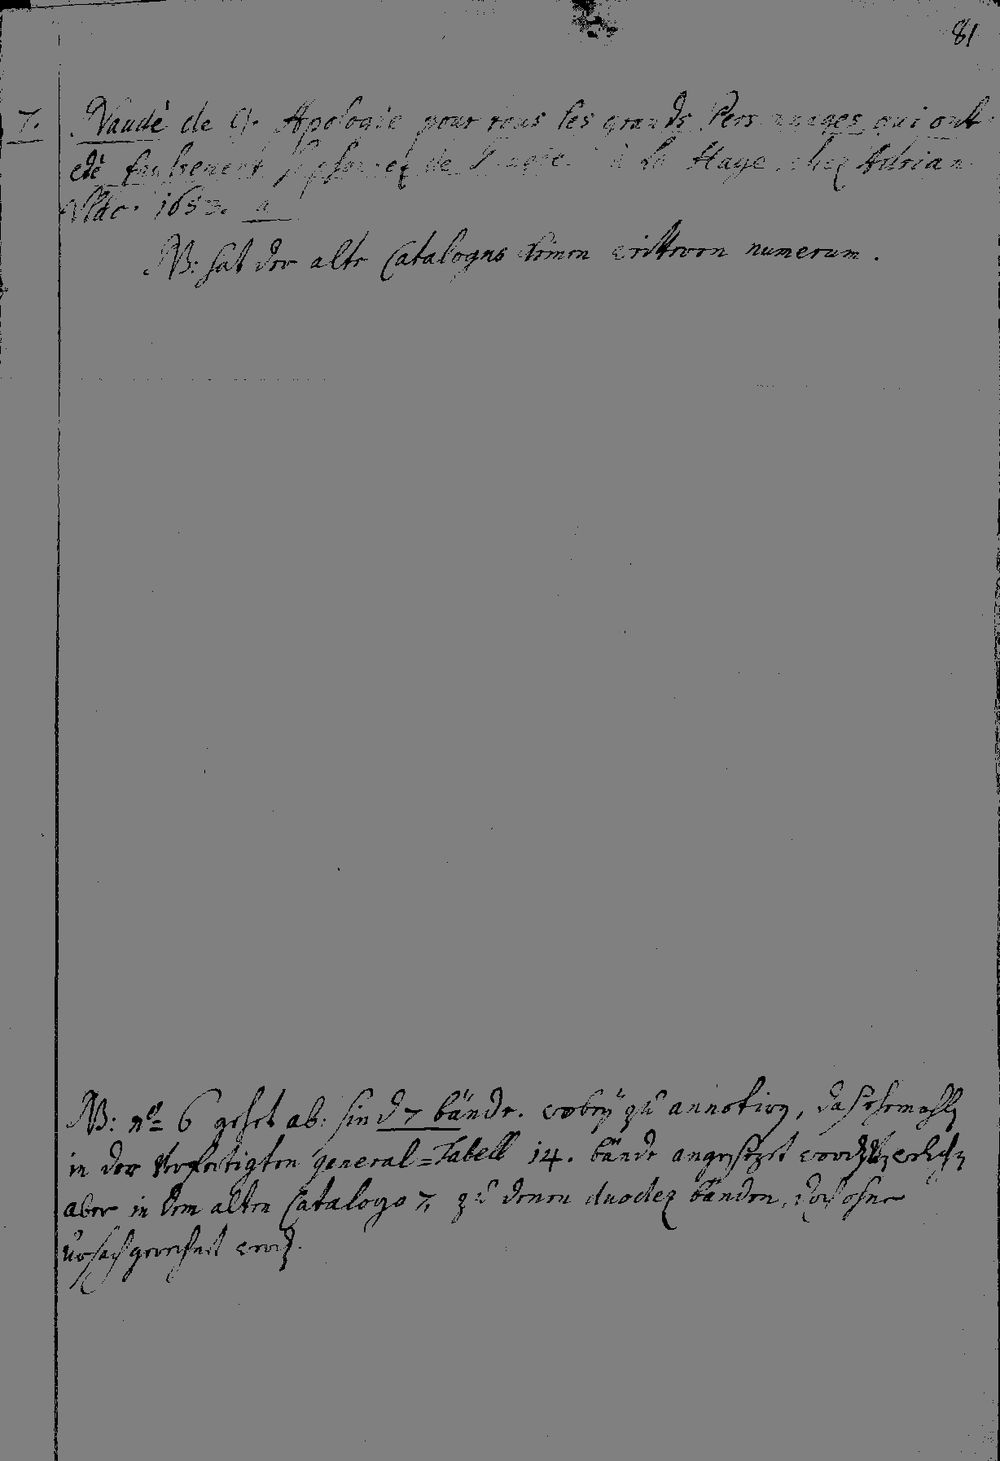 81
7. Naudé de G. Apologie pour tous les grands Personnages qui ont
esté faulsement soupsonnez de Magie. à la Haye chez Adrian
Vlac. 1653. a
NB: hat der alte Catalogus keinen weitteren numerum.
NB: nº 6 gehet ab: sind 7 bände. wobey zu annotirn, daß ehemahls
in der verfertigten general=Tabell 14. bände angesetzet worden, welche
aber in dem alten Catalogo 7. zu denen duodez bänden, doch ohne
Ursach gerechnet word.